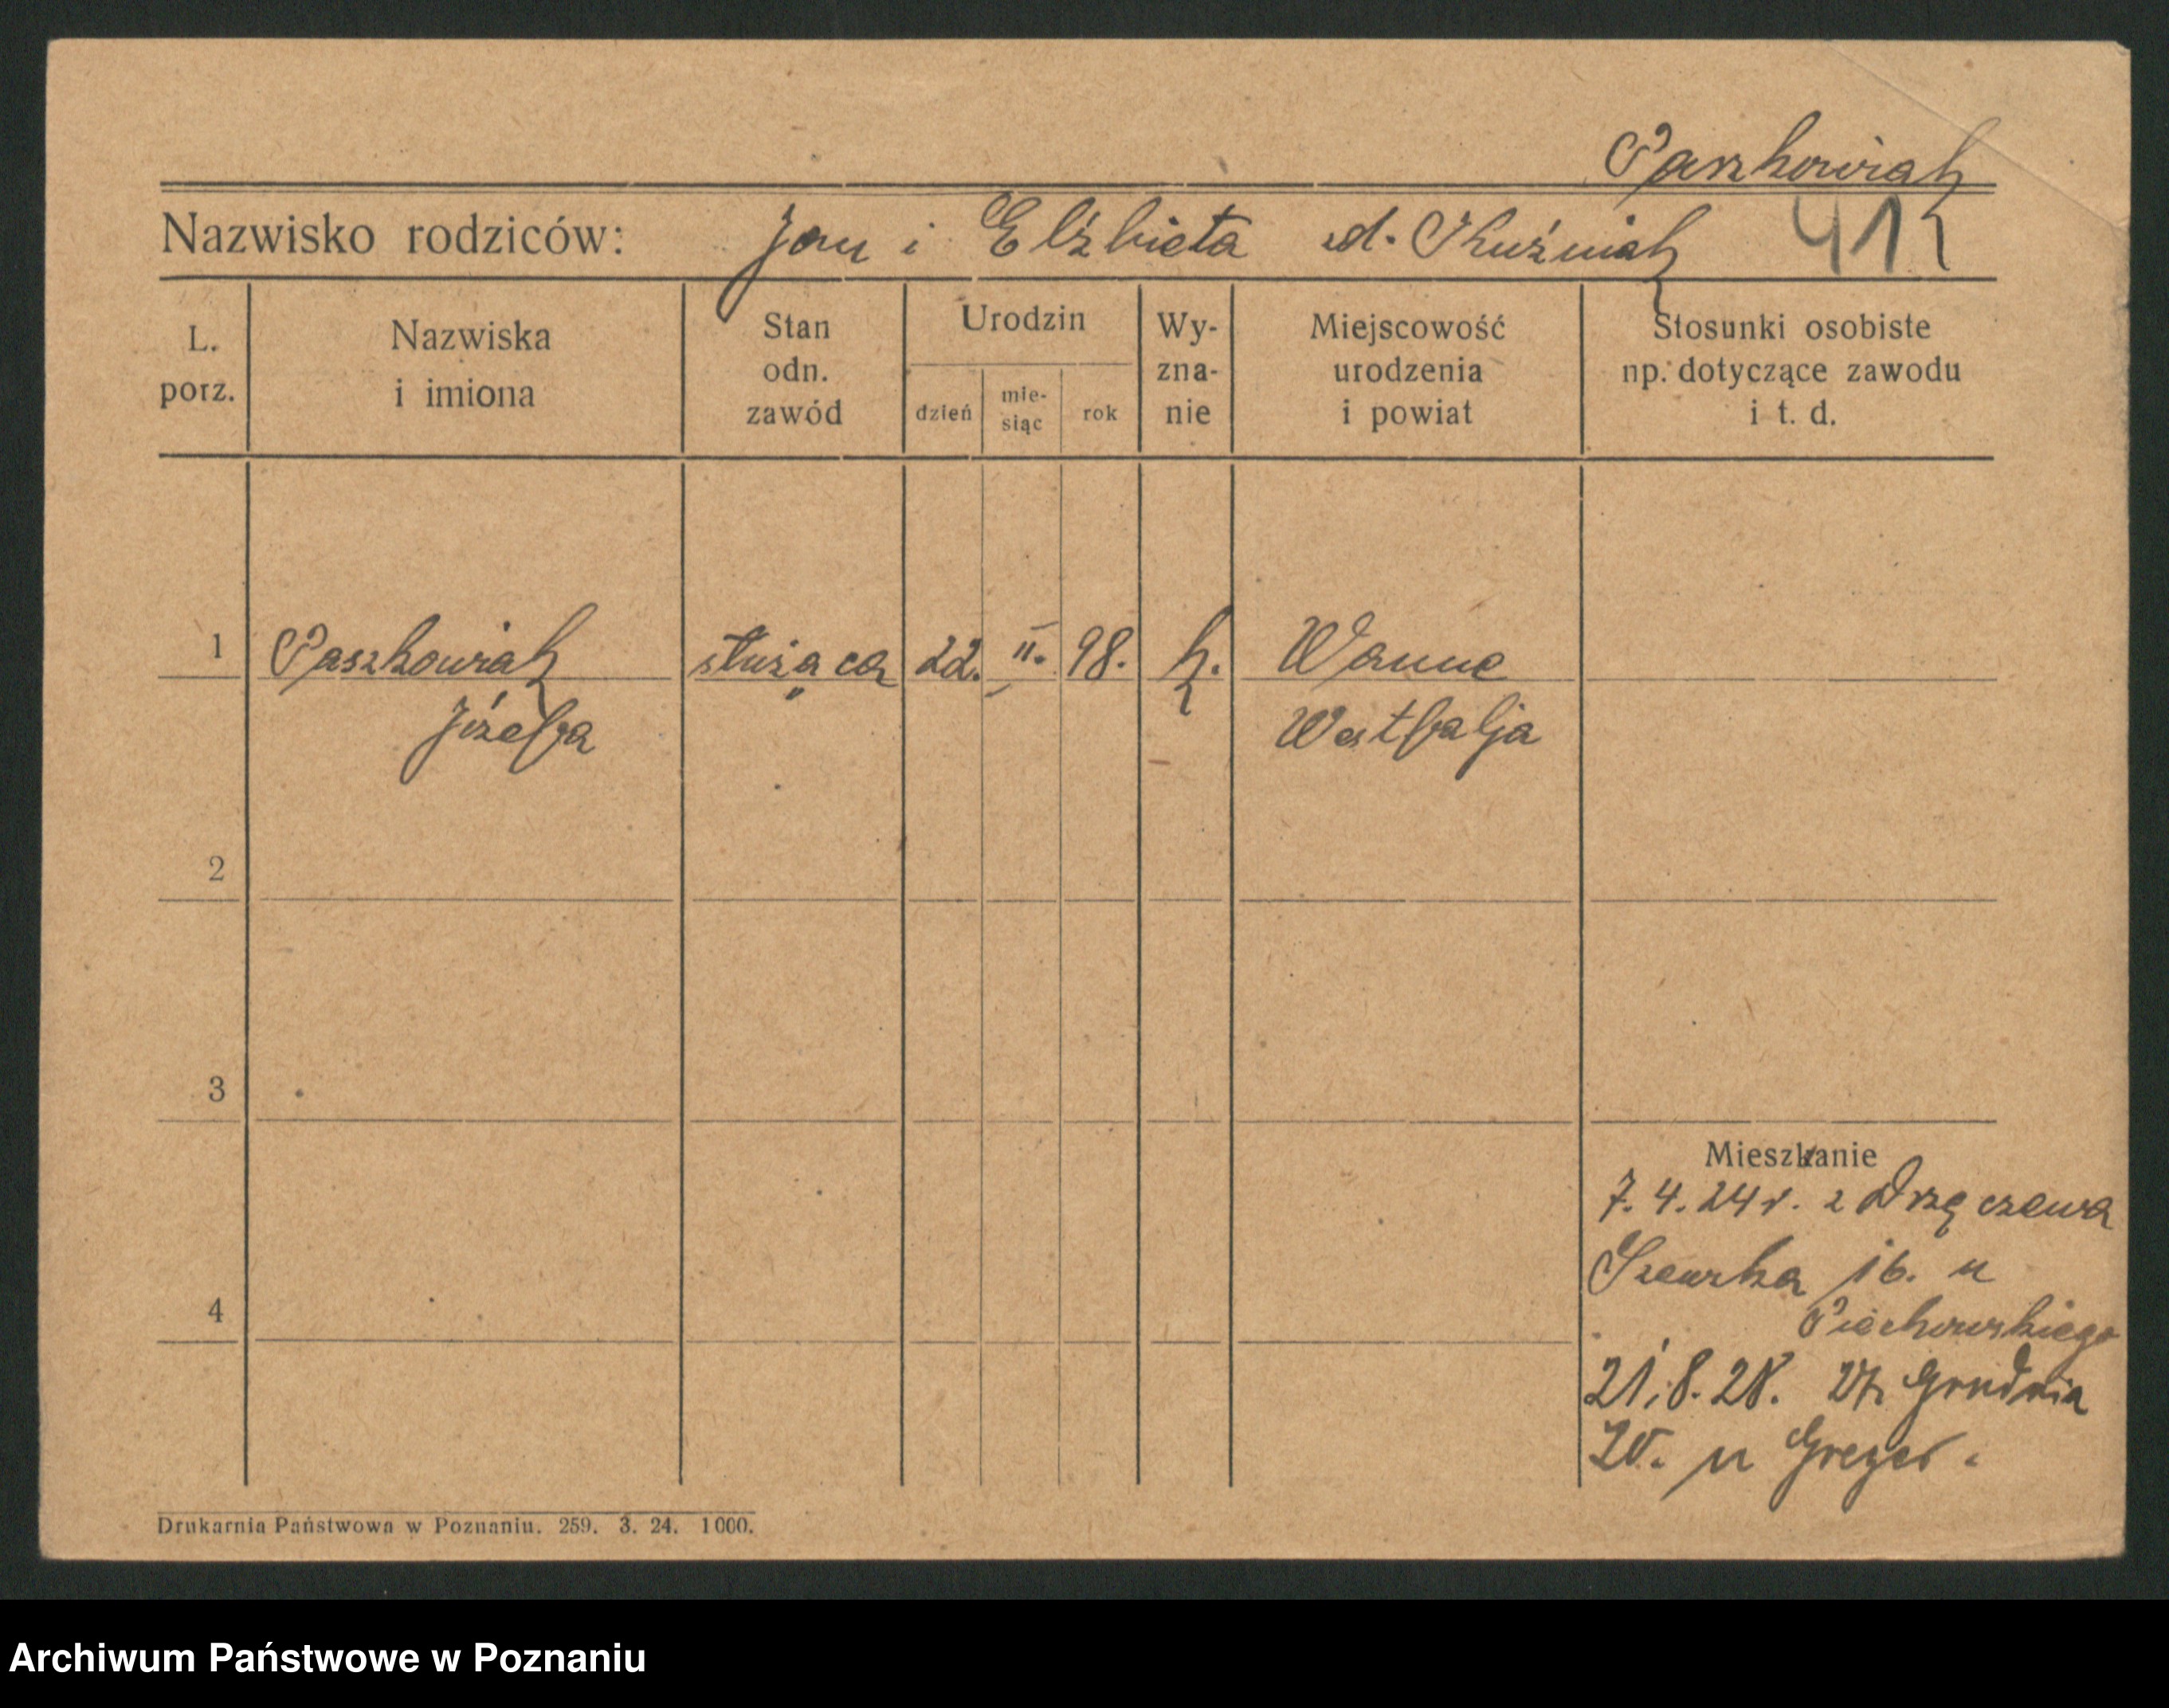 Paszkowiak
Nazwisko rodziców: Jan i Elżbieta d. Kuźniak 411
L. porz.
Nazwiska i imiona
Stan odn. zawód
Urodzin
dzień
mie-siąc
rok
Wy-zna-nie
Miejscowość urodzenia i powiat
Stosunki osobiste np. dotyczące zawodu i t. d.
1 Paszkowiak służąca 22. II. 98. k. Wanne
Józefa Westfalja
2
3
Mieszkanie
7. 4. 24 r. z Drzęczewa
Szewska 16. u
4
Piechowskiego
21. 8. 28. 27. Grudnia
20. u Greger.
Drukarnia Państwowa w Poznaniu. 259. 3. 24. 1000.
Archiwum Państwowe w Poznaniu